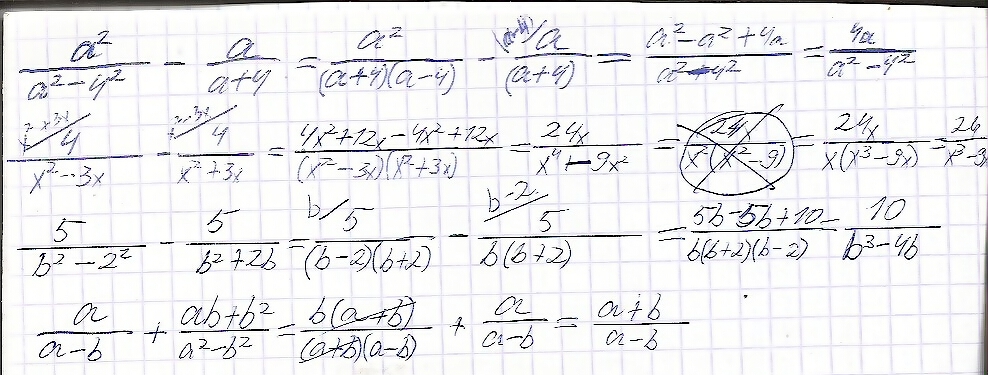 a²/(a² - y²) - a/(a+y) = a²/((a+y)(a-y)) - (a-y)/ a/(a+y) = (a² - a² + ya)/(a² - y²) = ya/(a² - y²)
4/(x² - 3x) - 4/(x² + 3x) = (4x² + 12x - 4x² + 12x)/((x² - 3x)(x² + 3x)) = 24x/(x⁴ - 9x²) = 24x/(x²(x² - 9)) = 24x/(x(x³ - 9x)) =
5/(b² - 2²) - 5/(b² + 2b) = b/ 5/((b-2)(b+2)) - b-2/ 5/(b(b+2)) = (5b - 5b + 10)/(b(b+2)(b-2)) = 10/(b³ - 4b)
a/(a-b) + (ab+b²)/(a² - b²) = b(a+b)/((a+b)(a-b)) + a/(a-b) = (a+b)/(a-b)